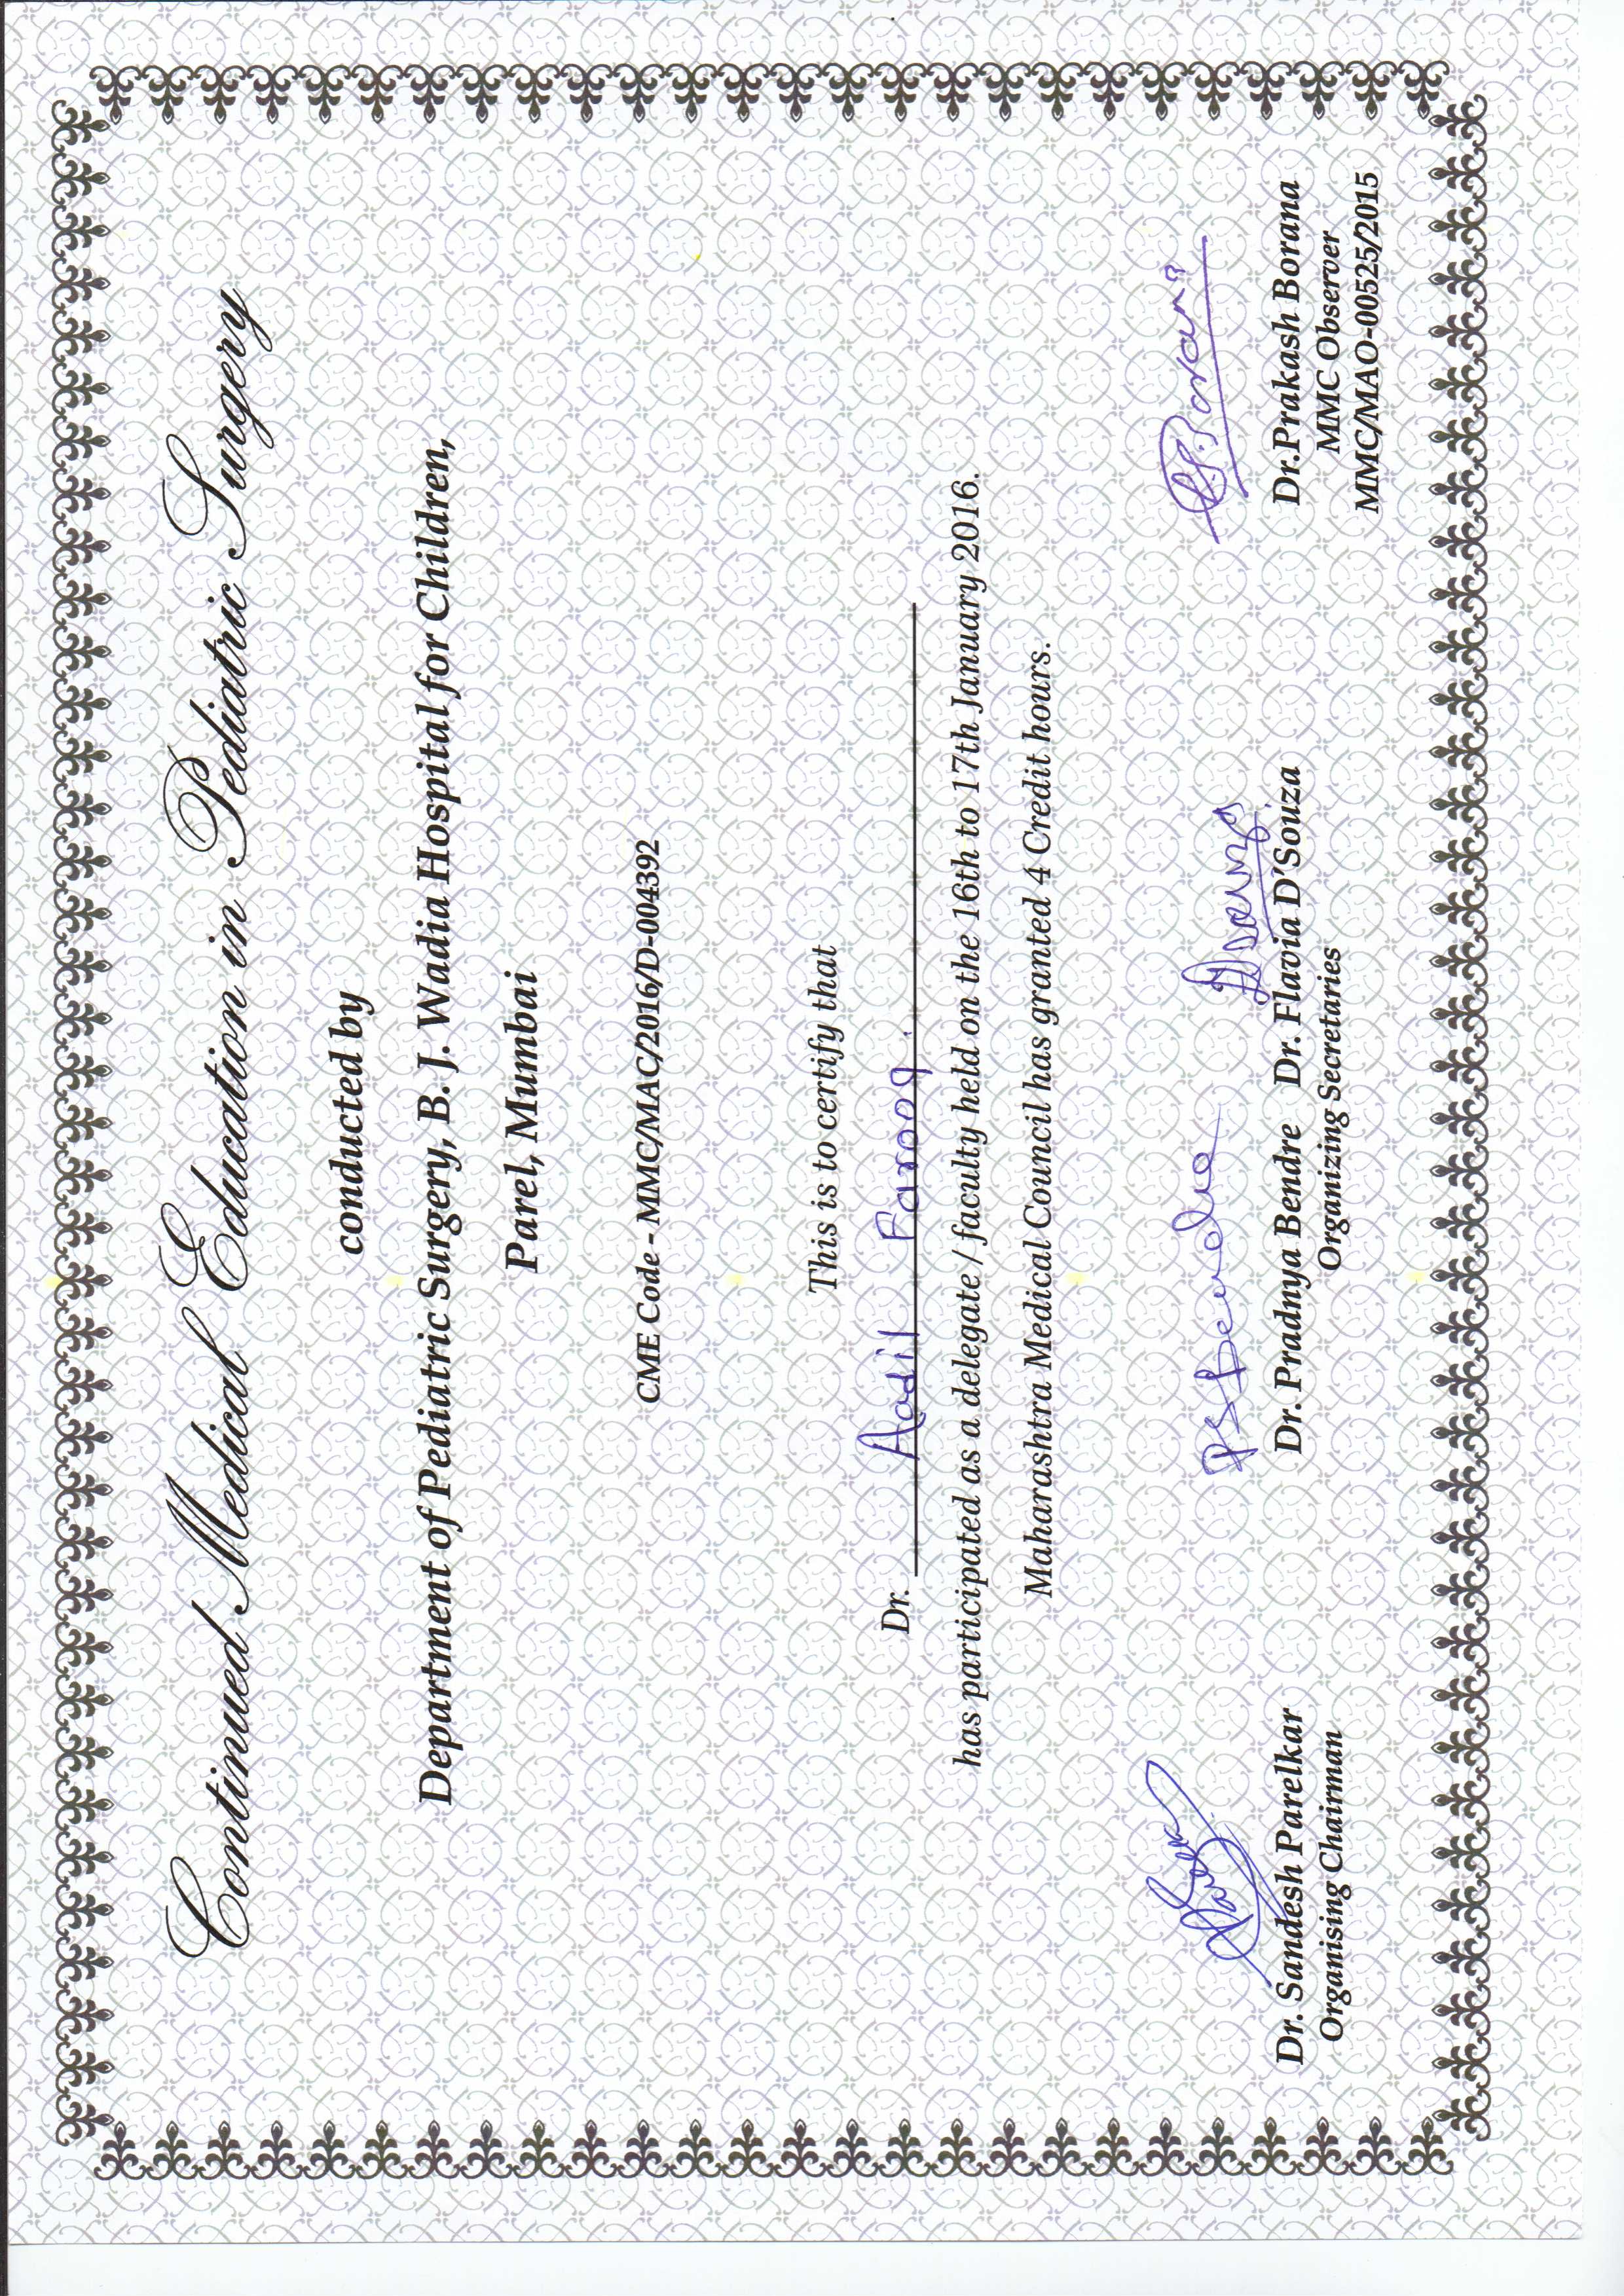 Continued Medical Education in Pediatric Surgery
conducted by
Department of Pediatric Surgery, B. J. Wadia Hospital for Children,
Parel, Mumbai
CME Code - MMC/MAC/2016/D-004392
This is to certify that
Dr. Aadil Farooq.
has participated as a delegate / faculty held on the 16th to 17th January 2016.
Maharashtra Medical Council has granted 4 Credit hours.
PSBendre
Dr. Sandesh Parelkar
Organising Chairman
Dr. Pradnya Bendre Dr. Flavia D'Souza
Organizing Secretaries
Dr.Prakash Borana
MMC Observer
MMC/MAO-00525/2015